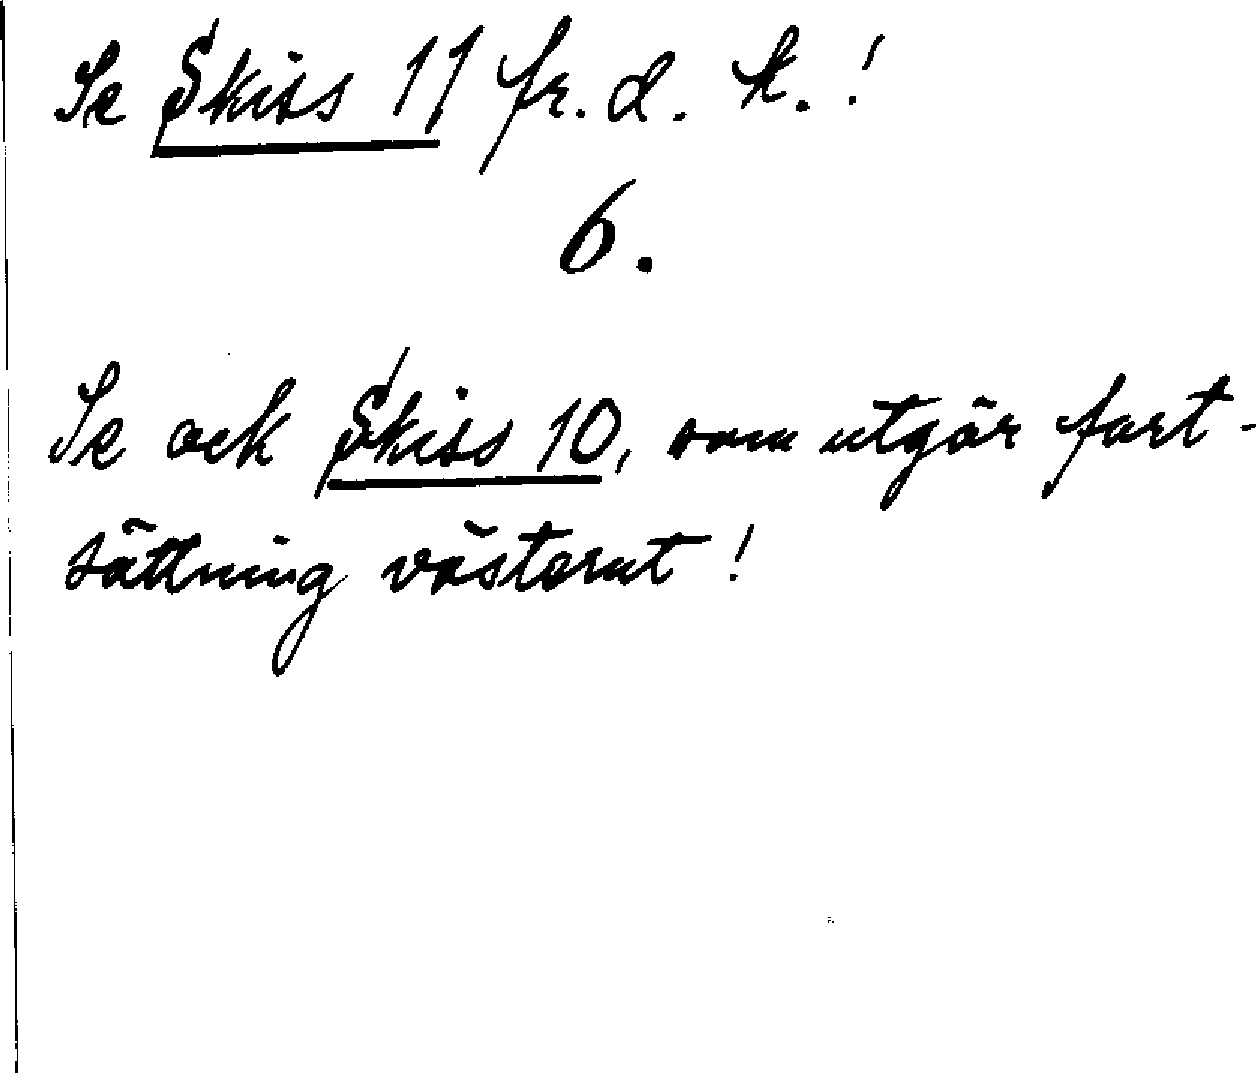 Se Skiss 11 fr. d. k.!
6.
Se ock Skiss 10, som utgör fort-
sättning västerut!